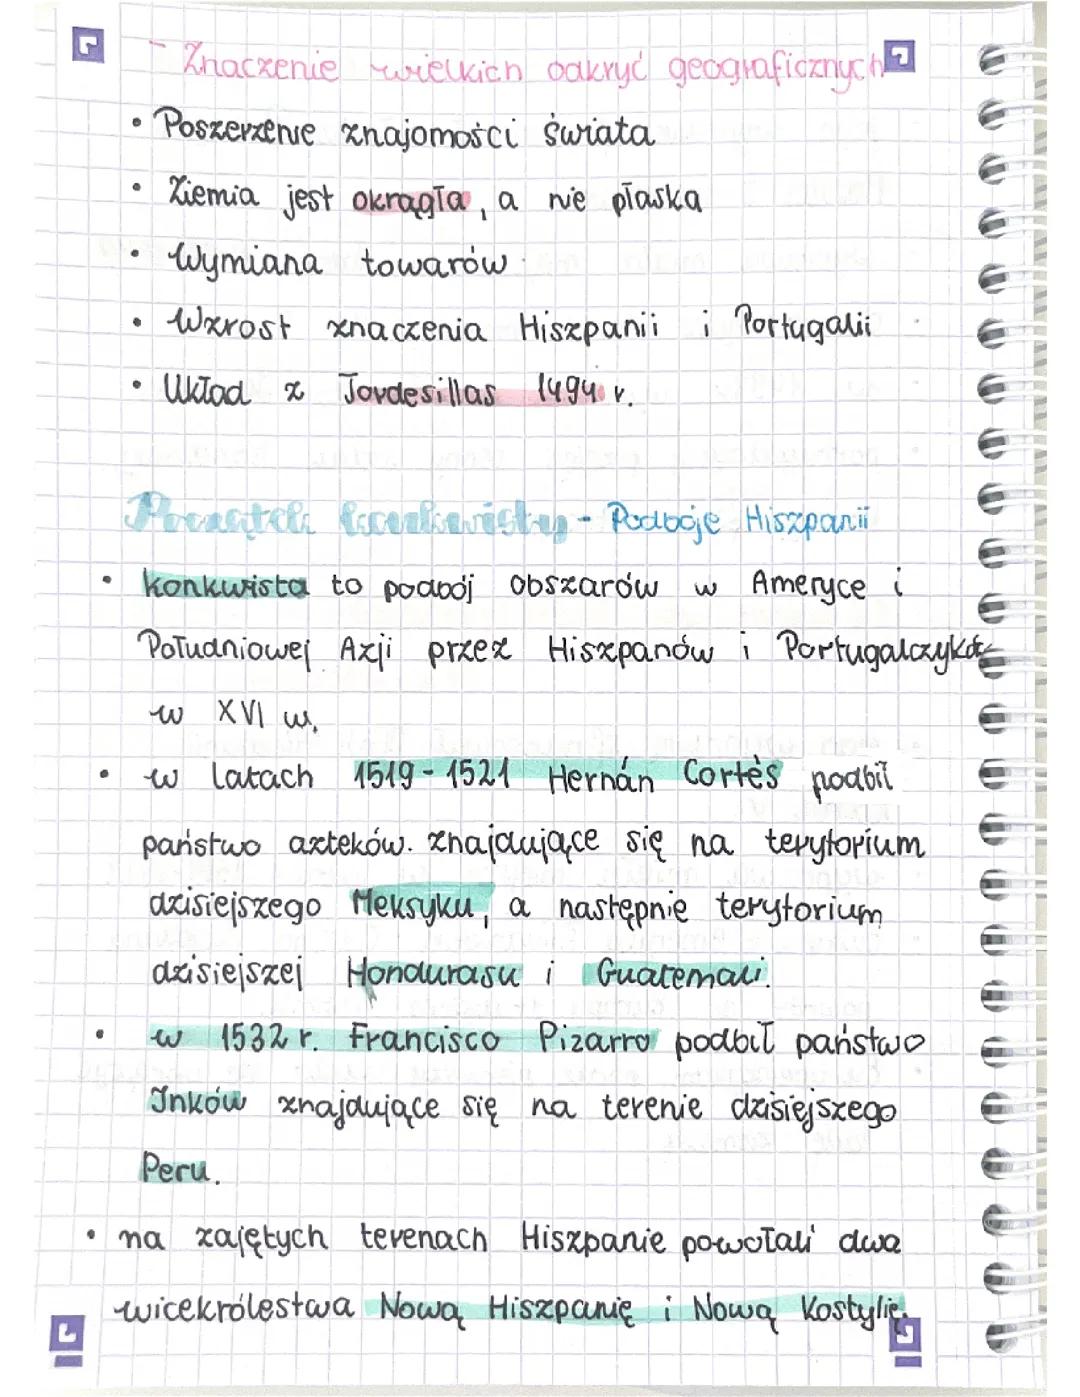 - Znaczenie wielkich odkryć geograficznych
• Poszerzenie znajomości świata
• Ziemia jest okrągła, a nie płaska
• Wymiana towarów
• Wzrost znaczenia Hiszpanii i Portugalii
• Układ z Tordesillas 1494 r.
Początek konkwisty - Podboje Hiszpanii
• konkwista to podbój obszarów w Ameryce i
Południowej Azji przez Hiszpanów i Portugalczyków
w XVI w.
• w latach 1519-1521 Hernán Cortès podbił
państwo azteków. znajdujące się na terytorium
dzisiejszego Meksyku, a następnie terytorium
dzisiejszej Hondurasu i Guatemali.
• w 1532 r. Francisco Pizarro podbił państwo
Inków znajdujące się na terenie dzisiejszego
Peru.
• na zajętych terenach Hiszpanie powołali dwa
wicekrólestwa Nową Hiszpanię i Nową Kostylię.